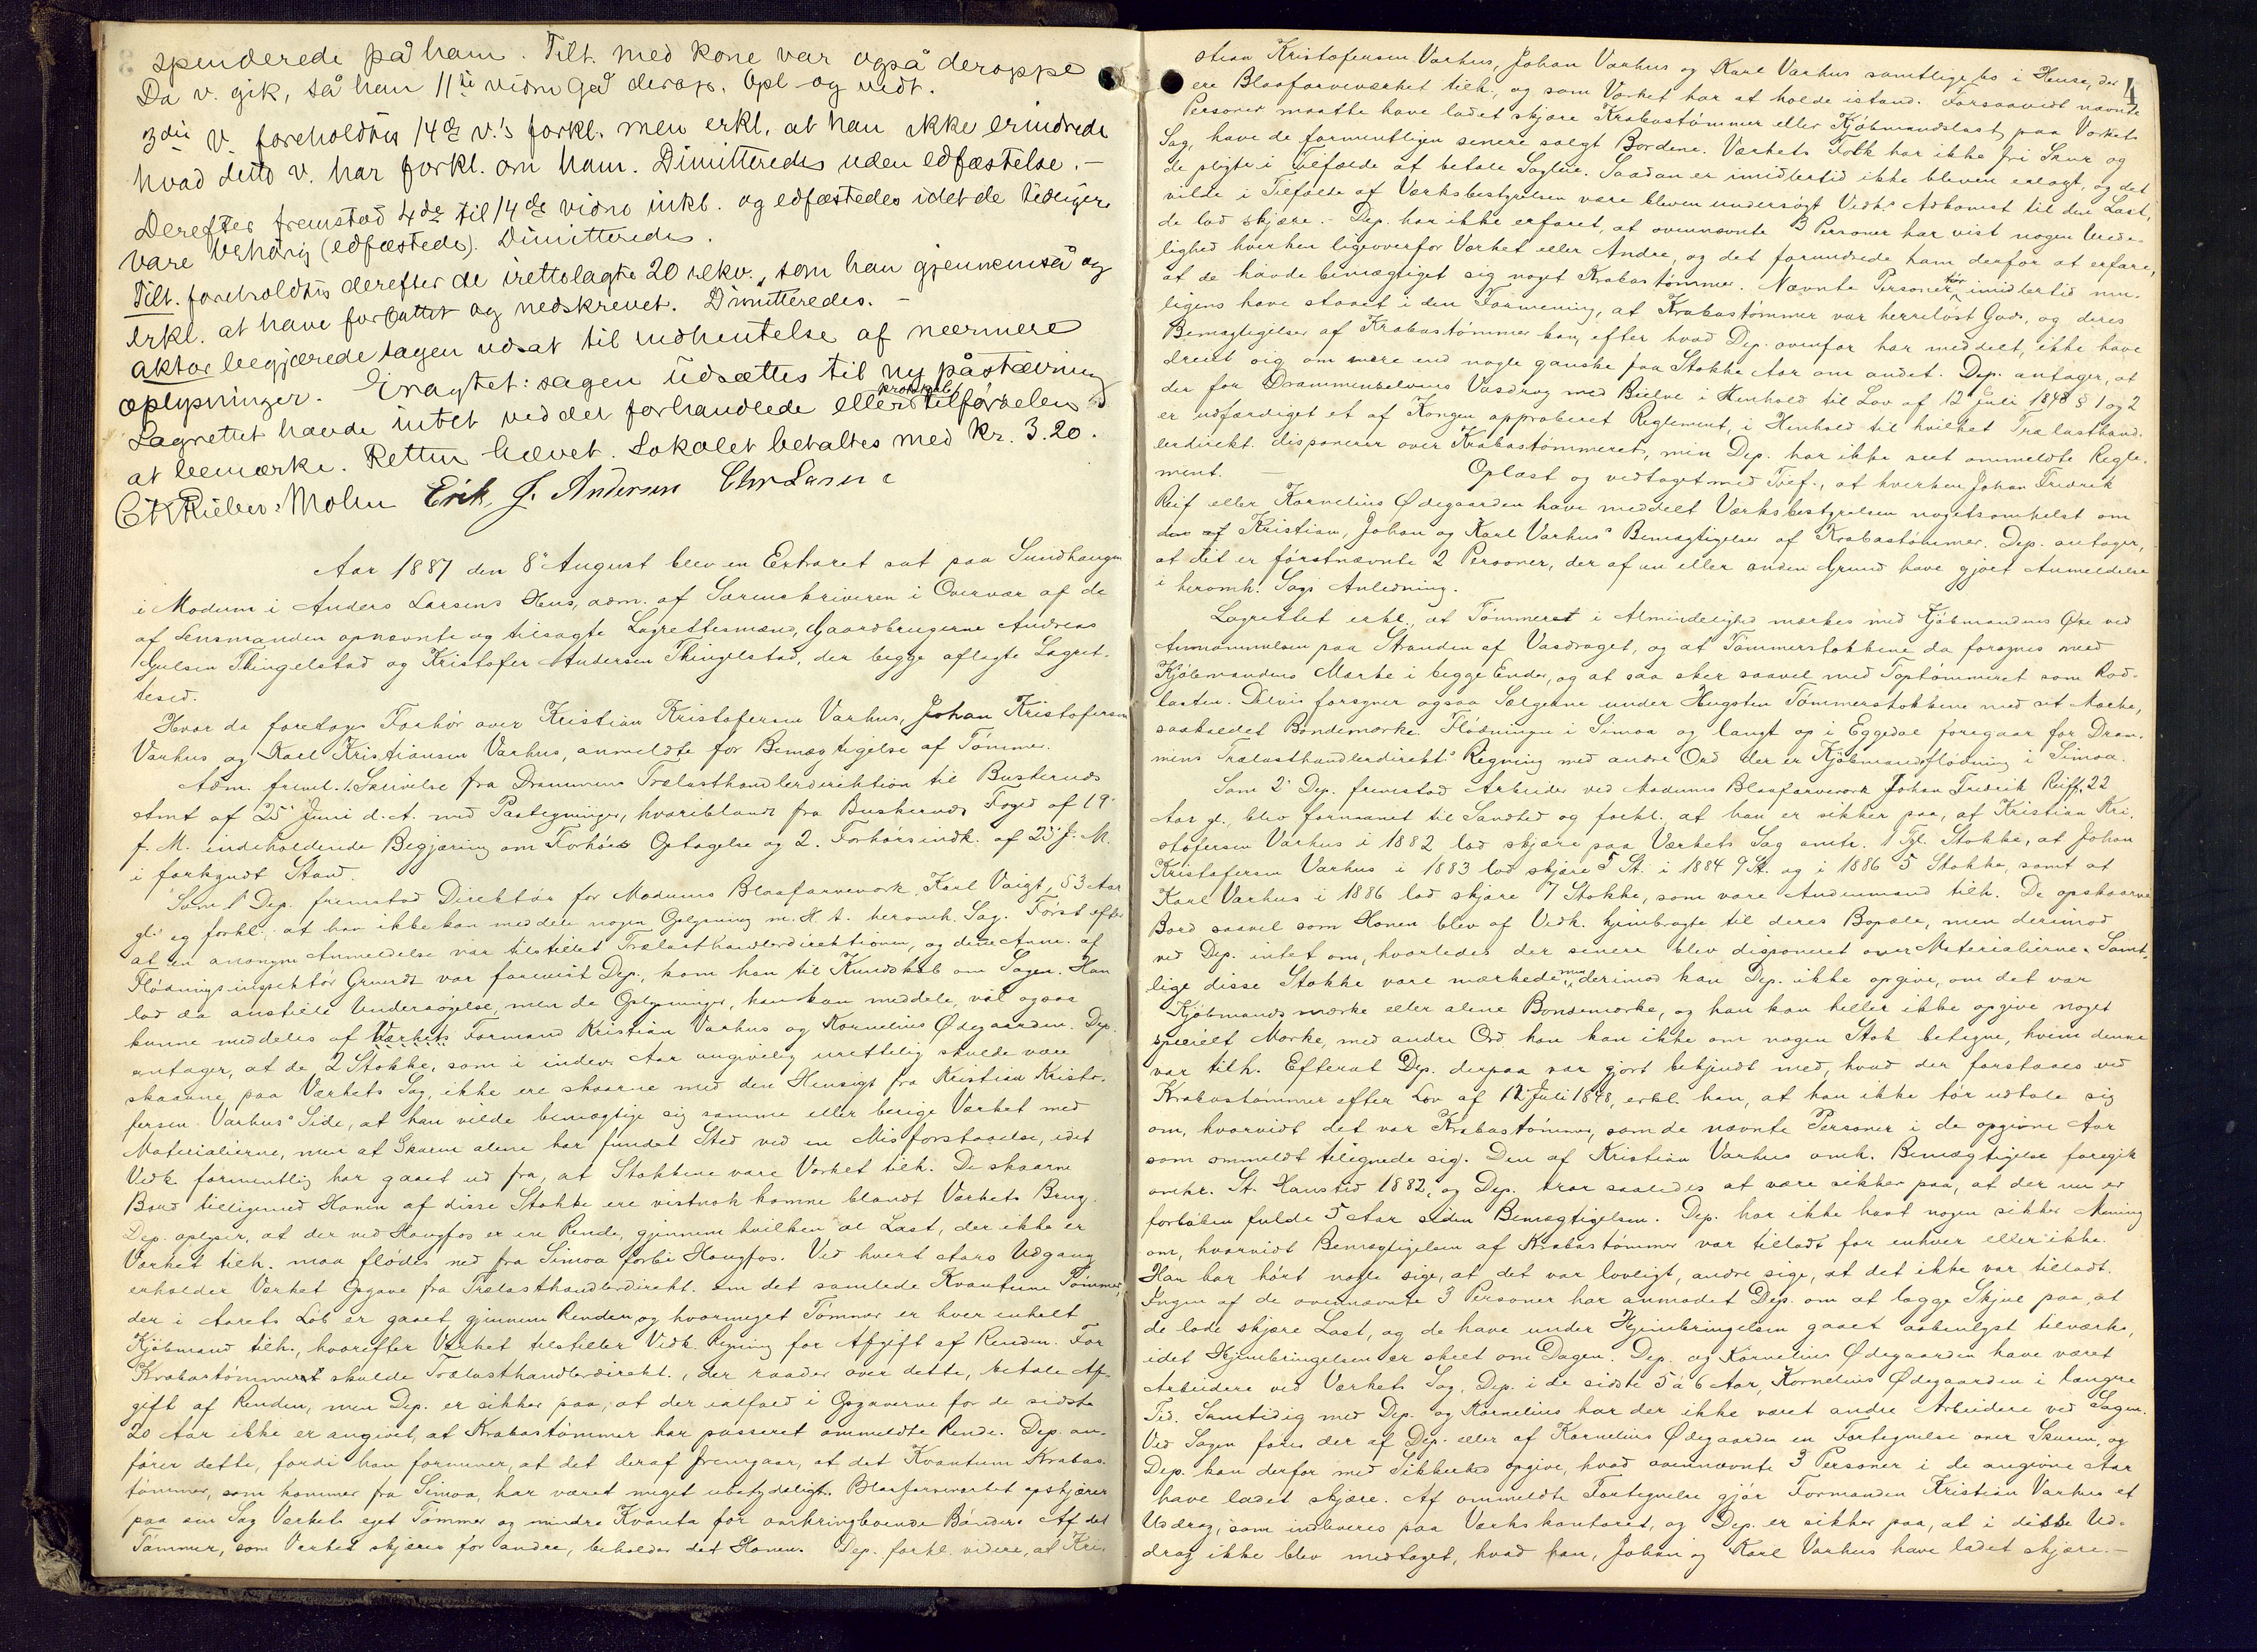 spenderede på ham. Tilt. med kone var også deroppe
Da v. gik, så han 11te vidne gå derop. Opl og vedt.
3die v. foreholdtes 14de v.'s forkl. men erkl. at han ikke erindrede
hvad dette v. har forkl. om ham. Dimitteredes uden edfæstelse.-
Derefter fremstod 4de til 14de vidne inkl. og edfæstedes idet de tidligere
vare behørig (edfæstede). Dimitteredes.
Tilt. foreholdtes derefter de irettelagte 20 rekv., som han gjennemså og
erkl. at have forfattet og nedskrevet. Dimitteredes.-
aktor begjærede sagen udsat til indhentelse af nærmere
oplysninger. Eragtet: sagen udsættes til ny påstævning
Lagrettet havde intet ved det forhandlede eller protokol tilførselen
at bemærke. Retten hævet. Lokalet betaltes med Kr. 3.20.
Erik J. Andersen Chr Larsen
Aar 1887 den 8de August blev en Extraret sat paa Sundhaugen
i Modum i Anders Larsens Hus, adm. af Sorenskriveren i Overvær af de
af Lensmanden opnævnte og tilsagte Lagrettesmænd, Gaardbrugerne Andreas
Gulsen Thingelstad og Kristofer Andersen Thingelstad, der begge aflagte Lagret-
tesed.
Hvor da foretoges Forhør over Kristian Kristofersen Varhus, Johan Kristofersen
Varhus og Karl Kristiansen Varhus, anmeldte for Bemægtigelse af Tømmer.
Adm. freml. 1. Skrivelse fra Drammens Trælasthandlerdirektion til Buskeruds
Amt af 25' Juni d. A. med Paategninger, hvoriblandt fra Buskeruds Foged af 19'
f. M. indeholdende Begjæring om Forhørs Optagelse og 2. Forhørsindk. af 25' f. M.
i forkyndt Stand.
Som 1' Dep. fremstod Direktør for Modums Blaafarveværk Karl Voigt, 53 Aar
gl. og forkl. at han ikke kan meddele nogen Oplysning m. H. t. heromh. Sag. Først efter
at en anonym Anmeldelse var tilstillet Trælasthandlerdirektionen, og denne Anm. af
Flødningsinspektør Grundt var forevist Dep., kom han til Kundskab om Sagen. Han
lod da anstille Undersøgelse, men de Oplysninger, han kan meddele, vil ogsaa
kunne meddeles af Værkets Formand Kristian Varhus og Kornelius Ødegaarden. Dep.
antager, at de 2 Stokke, som i indev. Aar angivelig urettelig skulde være
skaarne paa Værkets Sag, ikke ere skaarne med den Hensigt fra Kristian Kristo-
fersen Varhus' Side, at han vilde bemægtige sig samme eller berige Værket med
Materialierne, men at Skuren alene har fundet Sted ved en Misforstaaelse, idet
Vedk. formentlig har gaaet ud fra, at Stokkene vare Værket tilh. De skaarne
Bord tilligemed Honen af disse Stokke ere vistnok komne blandt Værkets Brug.
Dep. oplyser, at der ved Haugfos er en Rende, gjennem hvilken al Last, der ikke er
Værket tilh. maa flødes ned fra Simoa forbi Haugfos. Ved hvert Aars Udgang
erholder Værket Opgave fra Trælasthandlerdirekt. om det samlede Kvantum Tømmer,
der i Aarets Løb er gaaet gjennem Renden og hvormeget Tømmer er hver enkelt
Kjøbmand tilh., hvorefter Værket tilstiller Vedk. Regning for Afgift af Renden. For
Krabastømmeret skulde Trælasthandlerdirekt., der raader over dette, betale Af-
gift af Renden, men Dep. er sikker paa, at der ialfald i Opgaverne for de sidste
20 Aar ikke er angivet, at Krabastømmer har passeret ommeldte Rende. Dep. an-
fører dette, fordi han formener, at det deraf fremgaar, at det Kvantum Krabas-
tømmer, som kommer fra Simoa, har været meget ubetydeligt. Blaafarveværket opskjærer
paa sin Sag Værkets eget Tømmer og mindre Kvanta for omkringboende Bønder. Af det
Tømmer, som Værket skjærer for andre, beholder det Honen. Dep. forkl. videre, at Kri-
4
stian Kristofersen Varhus, Johan Varhus og Karl Varhus samtlige bo i Huse, der
ere Blaafarveværket tilh., og som Værket har at holde istand. Forsaavidt nævnte
Personer maatte have ladet skjære Krabastømmer eller Kjøbmandslast paa Værkets
Sag, have de formentligen senere solgt Bordene. Værkets Folk har ikke fri Skur og
de pligte i Tilfælde at betale Sagleie. Saadan er imidlertid ikke bleven erlagt, og det
vilde i Tilfælde af Værksbestyrelsen være bleven undersøgt Vedk.' Adkomst til den Last,
de lod skjære.- Dep. har ikke erfaret, at ovennævnte 3 Personer har vist nogen Urede-
lighed hverken ligeoverfor Værket eller Andre, og det forundrede ham derfor at erfare,
at de havde bemægtiget sig noget Krabastømmer. Nævnte Personer tør imidlertid mu-
ligens have staaet i den Formening, at Krabastømmer var herreløst Gods, og deres
Bemægtigelse af Krabastømmer kan, efter hvad Dep. ovenfor har meddelt, ikke have
dreiet sig om mere end nogle ganske faa Stokke Aar om andet. Dep. antager, at
der for Drammenselvens Vasdrag med Bielve i Henhold til Lov af 12 Juli 1848 § 1 og 2
er udfærdiget et af Kongen approberet Reglement, i Henhold til hvilket Trælasthand-
lerdirekt. disponerer over Krabastømmeret, men Dep. har ikke seet ommeldte Regle-
ment. - Oplæst og vedtaget med Tvef., at hverken Johan Fredrik
Reif eller Kornelius Ødegaarden have meddelt Værksbestyrelsen nogetsomhelst om
den af Kristian, Johan og Karl Varhus' Bemægtigelse af Krabastømmer. Dep. antager,
at det er førstnævnte 2 Personer, der af en eller anden Grund have gjort Anmeldelse
i heromh. Sags Anledning.
Lagrettet erkl., at Tømmeret i Almindelighed mærkes med Kjøbmandens Øxe ved
Annammelsen paa Stranden af Vasdraget, og at Tømmerstokkene da forsynes med
Kjøbmandens Mærke i begge Ender, og at saa sker saavel med Toptømmeret som Rod-
lasten. Delvis forsyner ogsaa Sælgerne under Hugsten Tømmerstokkene med sit Mærke,
saakaldet Bondemærke. Flødningen i Simoa og langt op i Eggedal foregaar for Dram-
mens Trælasthandlerdirekt.' Regning med andre Ord der er Kjøbmandsflødning i Simoa.
Som 2' Dep. fremstod Arbeider ved Modums Blaafarveværk Johan Fredrik Reiff, 22
Aar gl., blev formanet til Sandhed og forkl. at han er sikker paa, at Kristian Kri-
stofersen Varhus i 1882 lod skjære paa Værkets Sag omtr. 1 Tyl. Stokke, at Johan
Kristofersen Varhus i 1883 lod skjære 5 St. i 1884 9 St. og i 1886 5 Stokke, samt at
Karl Varhus i 1886 lod skjære 7 Stokke, som vare Andenmand tilh. De opskaarne
Bord saavel som Honen blev af Vedk. hjembragte til deres Bopæle, men derimod
ved Dep. intet om, hvorledes der senere blev disponeret over Materialierne. Samt-
lige disse Stokke vare mærkede, men derimod kan Dep. ikke opgive, om det var
Kjøbmands mærke eller alene Bondemærke, og han kan heller ikke opgive noget
specielt Mærke, med andre Ord han kan ikke om nogen Stok betegne, hvem denne
var tilh. Efterat Dep. derpaa var gjort bekjendt med, hvad der forstaaes ved
Krabastømmer efter Lov af 12 Juli 1848, erkl. han, at han ikke tør udtale sig
om, hvorvidt det var Krabastømmer, som de nævnte Personer i de opgivne Aar
som ommeldt tilegnede sig. Den af Kristian Varhus omh. Bemægtigelse foregik
omkr. St. Hanstid 1882, og Dep. tror saaledes at være sikker paa, at der nu er
forløben fulde 5 Aar siden Bemægtigelsen. Dep. har ikke havt nogen sikker Mening
om, hvorvidt Bemægtigelsen af Krabastømmer var tilladt for enhver eller ikke.
Han har hørt nogle sige, at det var lovligt, andre sige, at det ikke var tilladt.
Ingen af de ovennævnte 3 Personer har anmodet Dep. om at lægge Skjul paa, at
de lode skjære Last, og de have under Hjembringelsen gaaet aabenlyst tilværks,
idet Hjembringelsen er skeet om Dagen. Dep. og Kornelius Ødegaarden have været
Arbeidere ved Værkets Sag, Dep. i de sidste 5 à 6 Aar, Kornelius Ødegaarden i længre
Tid. Samtidig med Dep. og Kornelius har der ikke været andre Arbeidere ved Sagen.
Ved Sagen føres der af Dep. eller af Kornelius Ødegaarden en Fortegnelse over Skuren, og
Dep. kan derfor med Sikkerhed opgive, hvad ovennævnte 3 Personer i de angivne Aar
have ladet skjære. Af ommeldte Fortegnelse gjør Formanden Kristian Varhus et
Uddrag, som indleveres paa Værkskontoret, og Dep. er sikker paa, at i disse Ud-
drag ikke blev medtaget, hvad han, Johan og Karl Varhus have ladet skjære.-